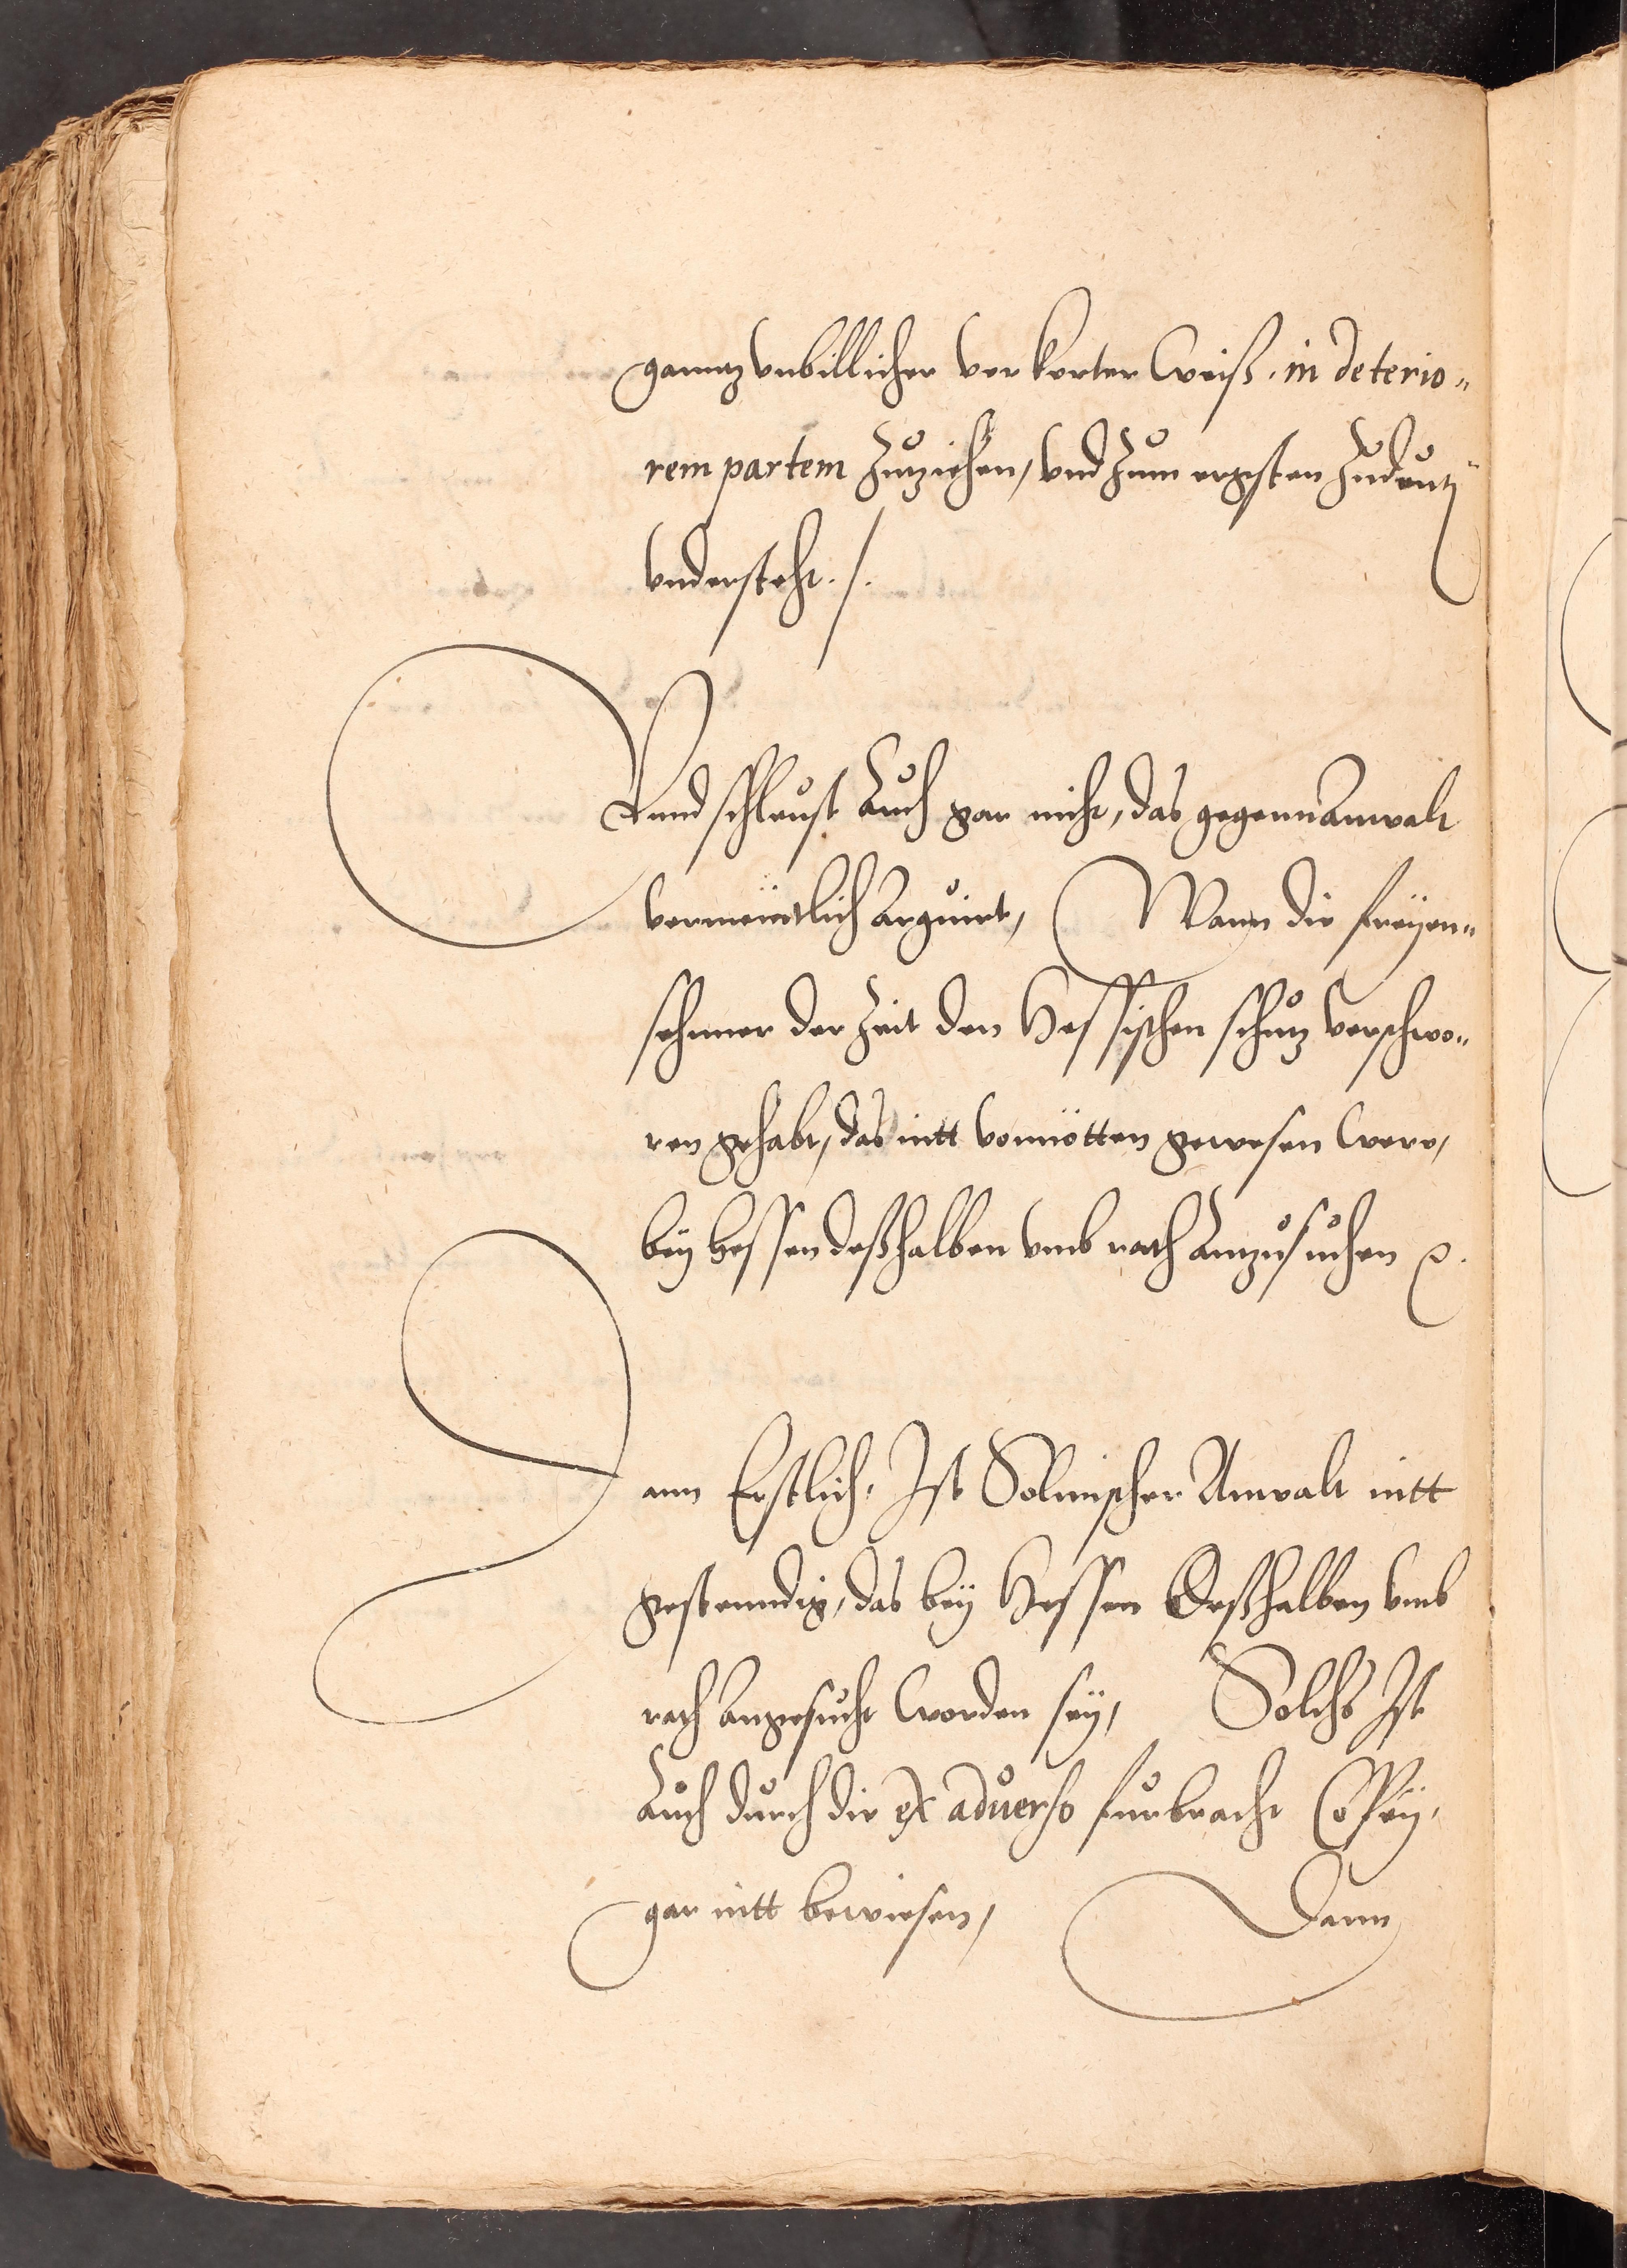 ganntz vnbillicher verkerter weiß. in deterio„
rem partem zuziehen, vnd zum ergsten zudeuten
vndersteht ./.
Vnnd schleust auch gar nicht, das gegennanwalt
vermeintlich arguirt, Wann die freyen„
sehner der zeit den Hessischen schutz verschwo„
ren gehabt, das nitt vonnötten gewesen were,
bey Hessen deßhalben vmb rath anzusuchen ꝛc.
Dann Erstlich, Ist Solmischer Anwalt nitt
gestenndig, das bey Hessen deßhalben vmb
rath angesucht worden sey, Solchs Ist
auch durch die ex aduerso furbracht Copey,
gar nitt bewiesen, Dann